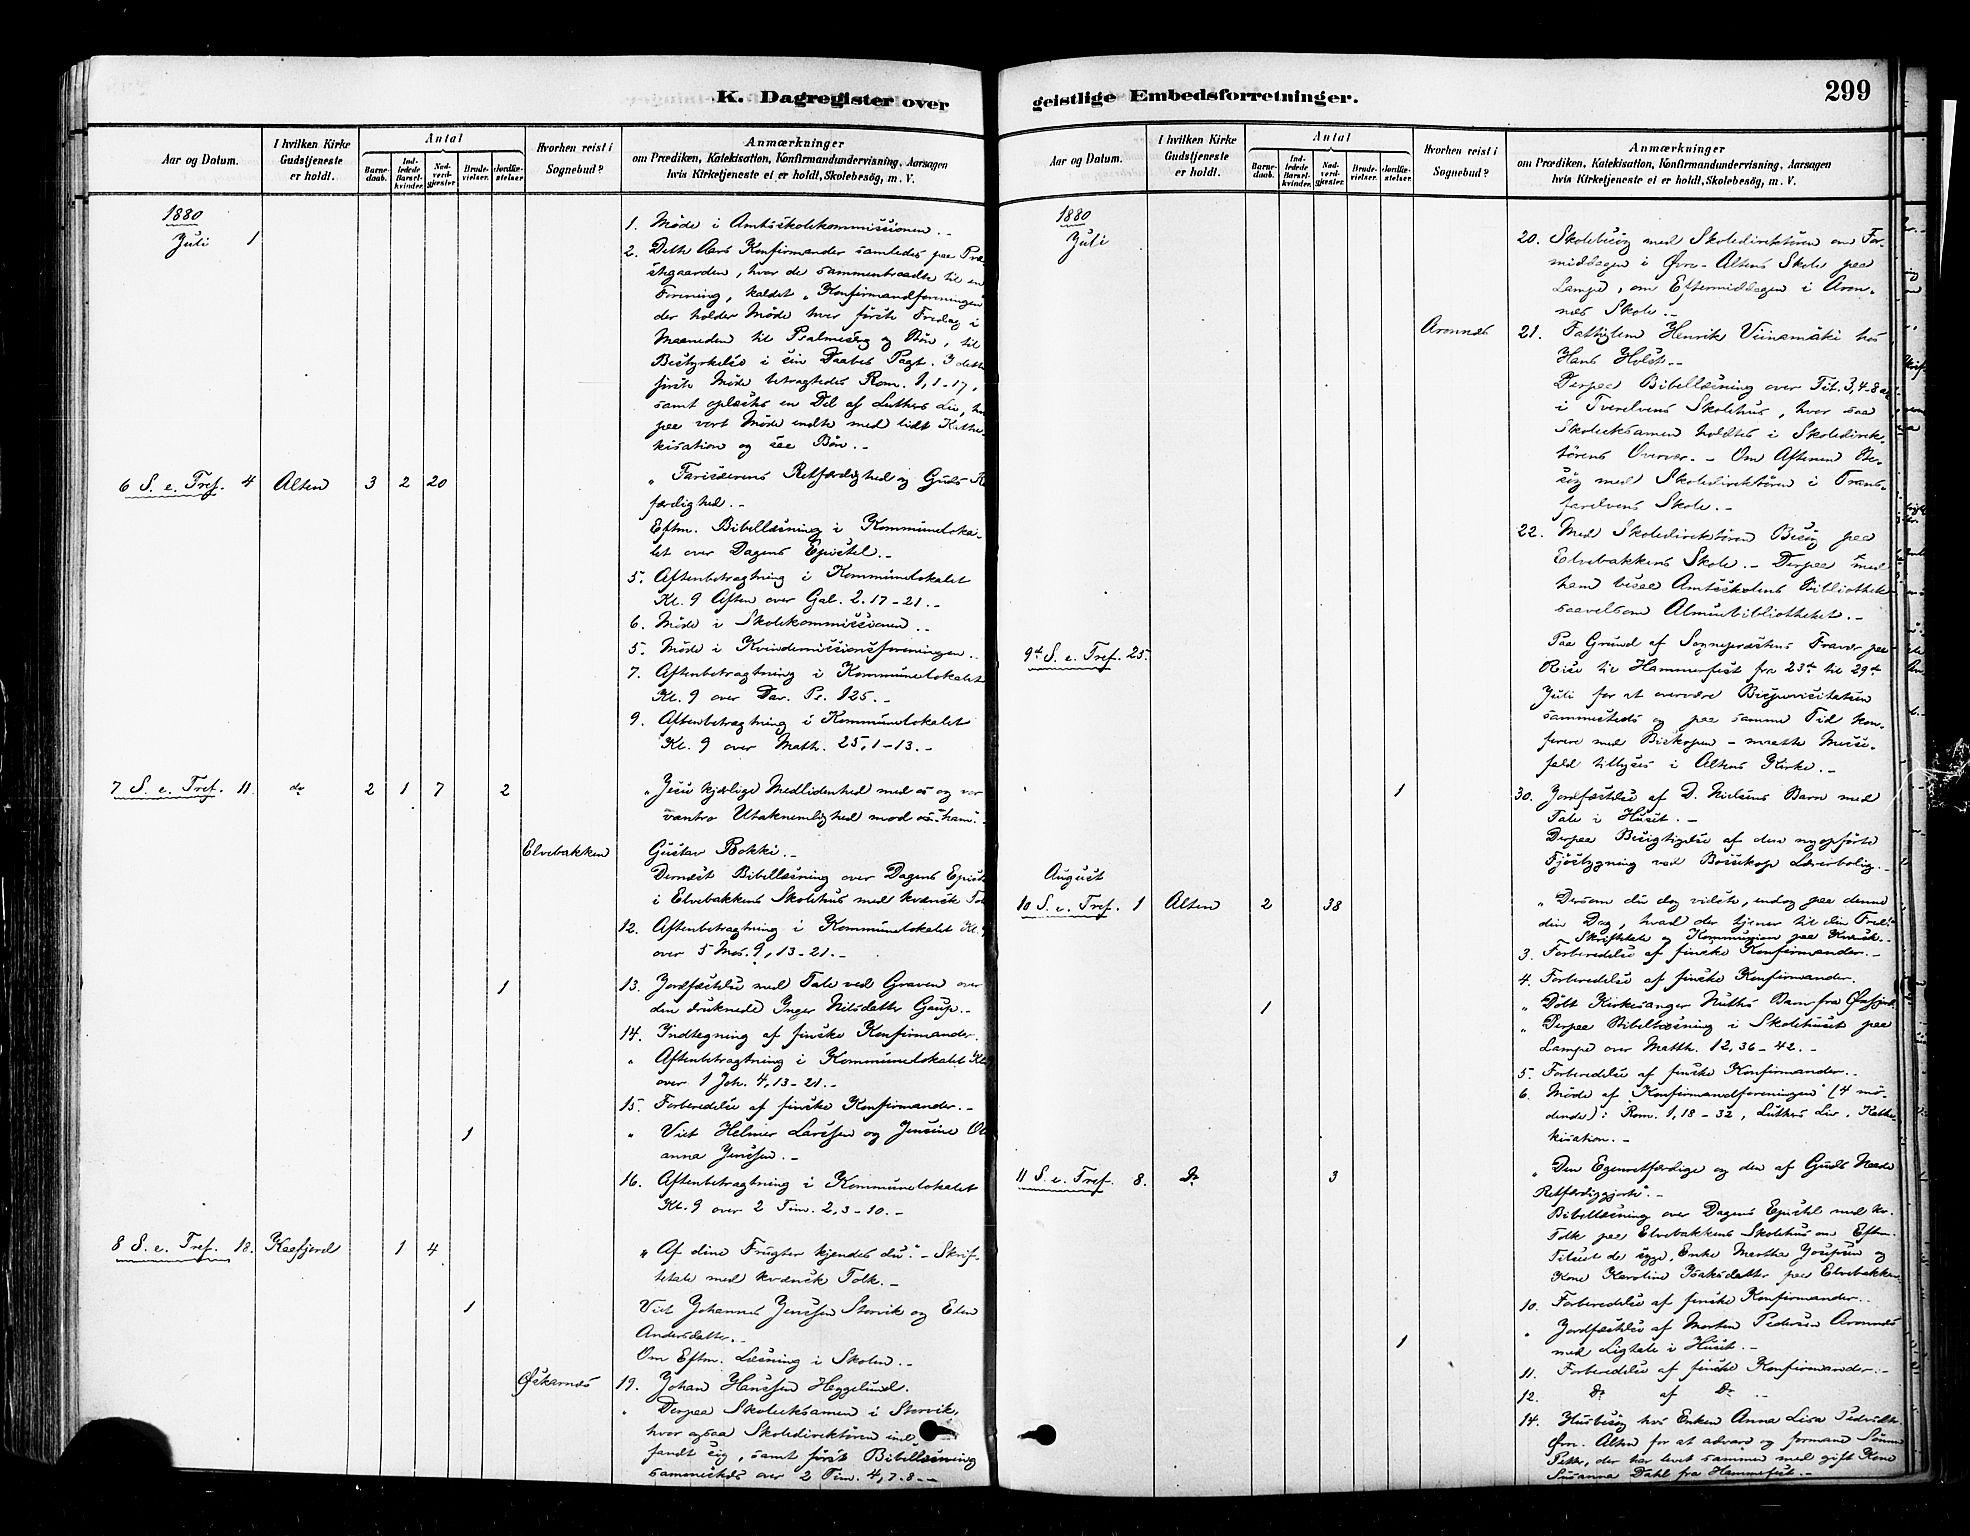 K. Dagregister over
Aar og Datum.
I hvilken Kirke Gudstjeneste er holdt.
Antal
Barnedaab.
Indledede Barselkvinder.
Nadverdgjester.
Brudevielser.
Jordfæstelser
Hvorhen reist i Sognebud?
Anmærkninger
om Prædiken, Katekisation, Konfirmandundervisning, Aarsagen
hvis Kirketjeneste ei er holdt, Skolebesög, m. V.
1880
Juli 1
1. Møde i Amtsskolekommissionen.-
2. Dette Aars Konfirmander samledes paa Præ-
stgaarden, hvor de sammentraadte til en
Forening, kaldet „Konfirmandforeningen"
der holder Møde hver første Fredag i
Maaneden til Psalmesang og Bøn, til
Bestyrkelse i sin Daabes Pagt. I dette
første Møde betragtedes Rom. 1,1-17,
samt oplæstes en Del af Luthers Liv,
paa vort Møde endte med lidt Kathe-
kisation og saa Bøn.-
6 S. e. Tref. 4 Alten 3 2 20 „Farisæerens Retfærdighed og Guds
færdighed.-
Eftm. Bibellæsning i Kommuneloka-
let over Dagens Epistel.-
5. Aftenbetragtning i Kommunelokalet
Kl. 9 Aften over Gal. 2.17-21.-
6. Møde i Skolekommissionen.-
5. Møde i Kvindemissionsforeningen.-
7. Aftenbetragtning i Kommunelokalet
Kl. 9 over Dav. Ps. 125.-
9. Aftenbetragtning i Kommunelokalet
Kl. 9 over Math. 25,1-13.-
7 S. e. Tref. 11. do 2 1 7 2 „Jesu kjærlige Medlidenhed med os og vor
vantro Utaknemlighed mod ham.-
Elvebakken Gustav Bokki.-
Dernæst Bibellæsning over Dagens Epistel
i Elvebakkens Skolehus med kvænsk Tolk
12. Aftenbetragtning i Kommunelokalet Kl. 9
over 5 Mos. 9, 13-21.-
1 13. Jordfæstelse med Tale ved Graven over
den druknede Inger Nilsdatter Gaup.-
14. Indtegning af finske Konfirmander.
„ Aftenbetragtning i Kommunelokalet Kl. 9
over 1 Joh. 4,13-21.-
15. Forberedelse af finske Konfirmander.-
1 „ Viet Helmer Larssen og Jensine
anna Jenssen.-
16. Aftenbetragtning i Kommunelokalet
Kl. 9 over 2 Tim. 2,3-10.-
8 S. e. Tref. 18. Kaafjord 1 4 „Af dine Frugter kjendes du."- Skrif-
tetale med kvænsk Tolk.-
1 Viet Johannes Jenssen Storvik og Elen
Andersdatter.-
Om Eftm. Læsning i Skolen.-
Øskarnæs 19. Johan Hanssen Heggelund.
„ Derpaa Skoleeksamen i Storvik,
hvor ogsaa Skoledirektøren ind-
fandt sig, samt først Bibellæsning
sammesteds over 2 Tim. 4,7-8.-
geistlige Embedsforretninger.
299
Aar og Datum.
I hvilken Kirke Gudstjeneste er holdt.
Antal
Barnedaab.
Indledede Barselkvinder.
Nadverdgjester.
Brudevielser.
Jordfæstelser
Hvorhen reist i Sognebud?
Anmærkninger
om Prædiken, Katekisation, Konfirmandundervisning, Aarsagen
hvis Kirketjeneste ei er holdt, Skolebesög, m. V.
1880
Juli
20. Skolebesøg med Skoledirektøren om For-
middagen i Øvre-Altens Skole paa
Lampe, om Eftermiddagen i Aron-
næs Skole.-
Aronnæs 21. Fattiglem Henrik Viinamäki hos
Hans Holst.-
Derpaa Bibellæsning over Tit. 3,4-8
i Tverelvens Skolehus, hvor saa
Skoleeksamen holdtes i Skoledirek-
tørens Overvær.- Om Aftenen Be-
søg med Skoledirektøren i Trans-
farelvens Skole.-
22. Med Skoledirektøren Besøg paa
Elvebakkens Skole.- Derpaa med
ham besaa Amtsskolens Bibliothek
saavelsom Almuebibliotheket.-
9de S. e. Tref. 25. Paa Grund af Sognepræstens Fravær paa
Reise til Hammerfest fra 23de til 29de
Juli for at overvære Bispevisitatsen
sammesteds og paa samme Tid kon-
ferere med Biskopen - maatte Messe-
fald tillyses i Altens Kirke.-
1 30. Jordfæstelse af D. Nielsens Barn med
Tale i Huset.-
Derpaa Besigtigelse af den nyopførte
Fjøsbygning ved Bossekop Lærerbolig.-
August
10 S. e. Tref. 1 Alten 2 38 „Dersom du dog vidste, endog paa denne
din Dag, hvad der tjener til din Fred!
Skriftetale og Kommunion paa Kvænsk.-
3. Forberedelse af finske Konfirmander.-
4. Forberedelse af finske Konfirmander.
1 „ Døbt Kirkesanger Huths Barn fra Øxfjord.
„ Derpaa Bibellæsning i Skolehuset paa
Lampe over Matth. 12,36-42.-
5. Forberedelse af finske Konfirmander.-
6. Møde af „Konfirmandforeningen" (4 mø-
dende): Rom. 1,18-32, Luthers Liv, Kathe-
kisation.-
11 S. e. Tref. 8. do 3 „Den Egenretfærdige og den af Guds Naade
Retfærdiggjorte".-
Bibellæsning over Dagens Epistel med kv.
Tolk paa Elvebakkens Skolehus om Eftm.
Tilseet de syge, Enke Martha Josefsen og
Kone Karoline Isaksdatter paa Elvebakken.
10. Forberedelse af finske Konfirmander.-
1 „ Jordfæstelse af Morten Pedersen Aronnæs
med Ligtale i Huset.-
11. Forberedelse af finske Konfirmander.-
12. do af do -
14. Husbesøg hos Enken Anna Lisa Pedersdtr
Øvr. Alten for at advare og formane Sønnen
Peder, der har levet sammen med gift Kone
Susanna Dahl fra Hammerfest.-